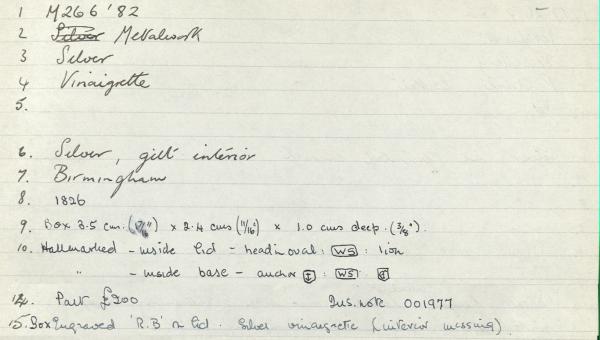 1 M266'82
2 Silver Metalwork
3 Silver
4 Vinaigrette
5.
6. Silver, gilt interior
7. Birmingham
8. 1826
9. Box 3.5 cm. x 2.4 cms (11/16") x 1.0 cms deep. (3/8").
10. Hallmarked - inside lid - head in oval : WS : lion
" - inside base - anchor : WS :
14. Part £200 Ins. note 001977
15. Box Engraved 'R.B' on lid. Silver vinaigrette (interior missing)